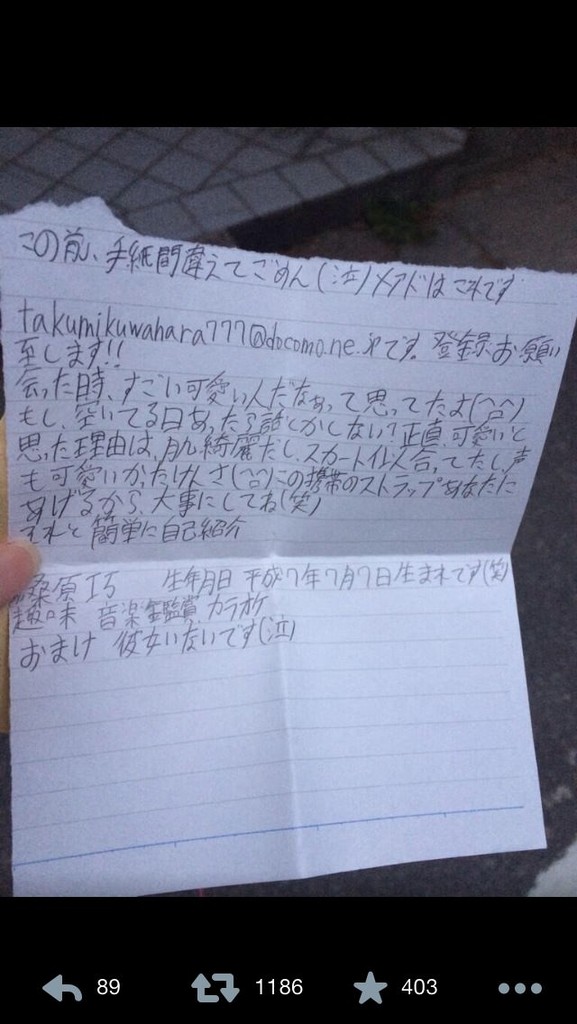 この前、手紙間違えてごめん(泣)メアドはこれです
takumikuwahara777@docomo.ne.jpです。登録お願い
至します!!
会った時、すごい可愛い人だなぁって思ってたよ(^o^)
もし、空いてる日あったら話しとかしない?正直、可愛いと
思った理由は、肌綺麗だし、スカート似合ってたし、声
も可愛いかったけんさ(^o^)この携帯のストラップあなたに
あげるから、大事にしてね(笑)
それと簡単に自己紹介
桑原巧 生年月日 平成7年7月7日生まれです(笑)
趣味 音楽鑑賞、カラオケ
おまけ 彼女いないです(泣)
89 1186 403